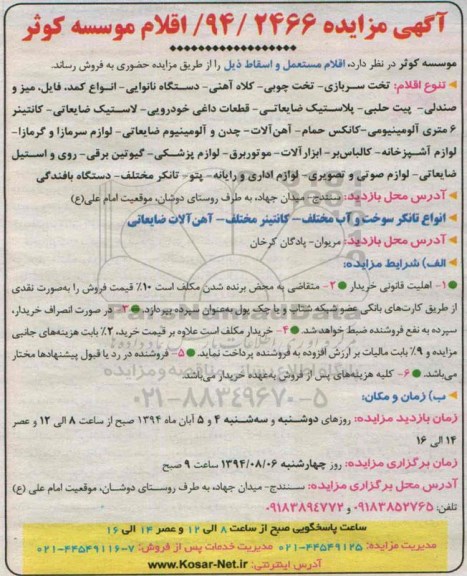 آگهی مزایده ۲۴۶۶ /۹۴/ اقلام موسسه کوثر
موسسه کوثر در نظر دارد، اقلام مستعمل و اسقاط ذیل را از طریق مزایده حضوری به فروش رساند.
تنوع اقلام: تخت سربازی- تخت چوبی- کلاه آهنی- دستگاه نانوایی- انواع کمد، فایل، میز و
صندلی- پیت حلبی- پلاستیک ضایعاتی- قطعات داغی خودرویی- لاستیک ضایعاتی- کانتینر
۶ متری آلومینیومی- کانکس حمام- آهن آلات- چدن و آلومینیوم ضایعاتی- لوازم سرمازا و گرمازا-
لوازم آشپزخانه- کالباس بر- ابزارآلات- موتوربرق- لوازم پزشکی- گیوتین برقی- روی و استیل
ضایعاتی- لوازم صوتی و تصویری- لوازم اداری و رایانه- پتو- تانکر مختلف- دستگاه بافندگی
آدرس محل بازدید: سنندج- میدان جهاد، به طرف روستای دوشان، موقعیت امام علی(ع)
انواع تانکر سوخت و آب مختلف- کانتینر مختلف- آهن آلات ضایعاتی
آدرس محل بازدید: مریوان- پادگان کرخان
الف) شرایط مزایده:
۱- اهلیت قانونی خریدار ۲- متقاضی به محض برنده شدن مکلف است ۱۰٪ قیمت فروش را به‌صورت نقدی
از طریق کارت‌های بانکی عضو شبکه شتاب و یا چک پول به‌عنوان سپرده بپردازد. ۳- در صورت انصراف خریدار،
سپرده به نفع فروشنده ضبط خواهد شد. ۴- خریدار مکلف است علاوه بر قیمت خرید، ۲٪ بابت هزینه‌های جانبی
مزایده و ۹٪ بابت مالیات بر ارزش افزوده به فروشنده پرداخت نماید. ۵- فروشنده در رد یا قبول پیشنهادها مختار
می‌باشد. ۶- کلیه هزینه‌های پس از فروش به‌عهده خریدار می‌باشد.
۰۲۱-۸۸۳۴۹۶۷۰-۵
ب) زمان و مکان:
زمان بازدید مزایده: روزهای دوشنبه و سه‌شنبه ۴ و ۵ آبان ماه ۱۳۹۴ صبح از ساعت ۸ الی ۱۲ و عصر
۱۴ الی ۱۶
زمان برگزاری مزایده: روز چهارشنبه ۱۳۹۴/۰۸/۰۶ ساعت ۹ صبح
آدرس محل برگزاری مزایده: سنندج- میدان جهاد، به طرف روستای دوشان، موقعیت امام علی (ع)
تلفن: ۰۹۱۸۳۸۵۲۷۶۵ و ۰۹۱۸۳۸۹۴۷۷۲
ساعت پاسخگویی صبح از ساعت ۸ الی ۱۲ و عصر ۱۴ الی ۱۶
مدیریت مزایده: ۴۴۵۴۹۱۲۵-۰۲۱ مدیریت خدمات پس از فروش: ۷-۴۴۵۴۹۱۱۶-۰۲۱
آدرس اینترنتی: www.Kosar-Net.ir